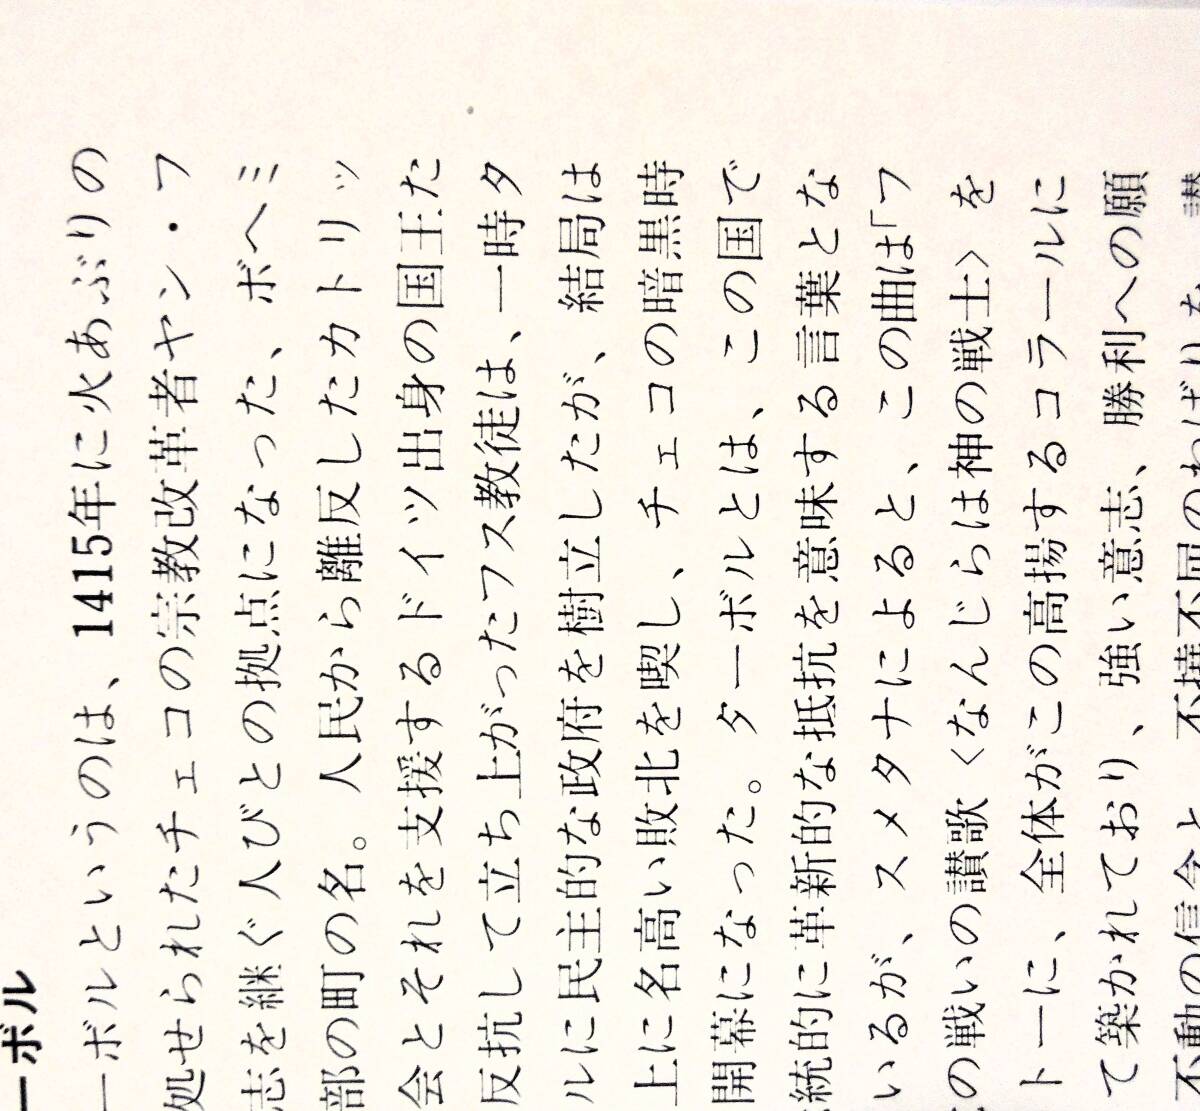 ーボル
ーボルというのは、1415年に火あぶりの
処せられたチェコの宗教改革者ヤン・フ
志を継ぐ人びとの拠点になった、ボヘミ
部の町の名。人民から離反したカトリッ
会とそれを支援するドイツ出身の国王た
反抗して立ち上がったフス教徒は、一時タ
ルに民主的な政府を樹立したが、結局は
上に名高い敗北を喫し、チェコの暗黒時
開幕になった。ターボルとは、この国で
統的に革新的な抵抗を意味する言葉とな
いるが、スメタナによると、この曲は「フ
の戦いの讃歌〈なんじらは神の戦士〉を
トーに、全体がこの高揚するコラールに
て築かれており、強い意志、勝利への願
不動の信念と、不撓不屈のねばりを、讃